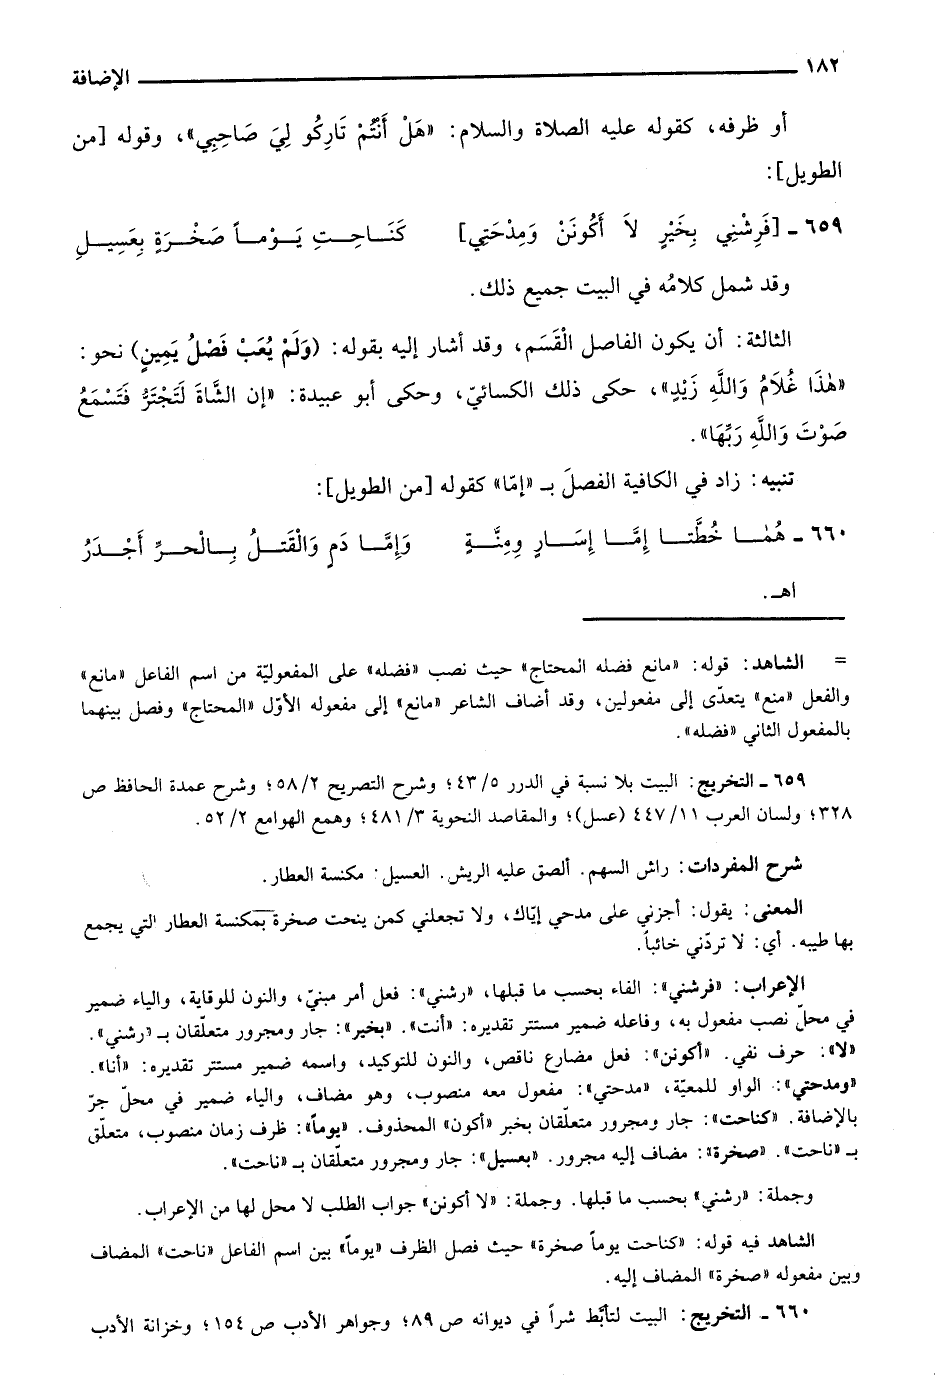 ١٨٢ الإضافة
أو ظرفه، كقوله عليه الصلاة والسلام: «هَلْ أَنْتُمْ تَارِكُو لِيَ صَاحِبِي»، وقوله [من
الطويل]:
٦٥٩ ـ [فَرِشْنِي بِخَيْرٍ لاَ أَكُونَنْ وَمِدْحَتِي] كَنَـاحِـتِ يَـوْمـاً صَخْـرَةٍ بِعَسِيـلِ
وقد شمل كلامُه في البيت جميع ذلك.
الثالثة: أن يكون الفاصل الْقَسَم، وقد أشار إليه بقوله: (وَلَمْ يُعَبْ فَصْلُ يَمِينٍ) نحو:
«هٰذَا غُلَامُ وَاللَّهِ زَيْدٍ»، حكى ذلك الكسائيّ، وحكى أبو عبيدة: «إن الشَّاةَ لَتَجْتَرُّ فَتَسْمَعُ
صَوْتَ وَاللَّهِ رَبِّهَا».
تنبيه: زاد في الكافية الفصلَ بـ «إمّا» كقوله [من الطويل]:
٦٦٠ ـ هُمَـا خُطَّتـا إِمَّـا إِسَـارٍ ومِنَّـةٍ وَإِمَّـا دَمٍ وَالْقَتـلُ بِـالْحـرِّ أَجْـدَرُ
اهـ.
= الشاهد: قوله: «مانع فضله المحتاج» حيث نصب «فضله» على المفعوليّة من اسم الفاعل «مانع»
والفعل «منع» يتعدّى إلى مفعولين، وقد أضاف الشاعر «مانع» إلى مفعوله الأوّل «المحتاج» وفصل بينهما
بالمفعول الثاني «فضله».
٦٥٩ ـ التخريج: البيت بلا نسبة في الدرر ٤٣/٥؛ وشرح التصريح ٥٨/٢؛ وشرح عمدة الحافظ ص
٣٢٨؛ ولسان العرب ٤٤٧/١١ (عسل)؛ والمقاصد النحوية ٤٨١/٣؛ وهمع الهوامع ٥٢/٢.
شرح المفردات: راش السهم. ألصق عليه الريش. العسيل: مكنسة العطار.
المعنى: يقول: أجزني على مدحي إيّاك، ولا تجعلني كمن ينحت صخرة بمكنسة العطار التي يجمع
بها طيبه. أي: لا تردّني خائباً.
الإعراب: «فرشني»: الفاء بحسب ما قبلها، «رشني»: فعل أمر مبنيّ، والنون للوقاية، والياء ضمير
في محلّ نصب مفعول به، وفاعله ضمير مستتر تقديره: «أنت». «بخير»: جار ومجرور متعلّقان بـ «رشني».
«لا»: حرف نفي. «أكونن»: فعل مضارع ناقص، والنون للتوكيد، واسمه ضمير مستتر تقديره: «أنا».
«ومدحتي»: الواو للمعيّة، «مدحتي»: مفعول معه منصوب، وهو مضاف، والياء ضمير في محلّ جرّ
بالإضافة. «كناحت»: جار ومجرور متعلّقان بخبر «أكون» المحذوف. «يوماً»: ظرف زمان منصوب، متعلّق
بـ «ناحت». «صخرة»: مضاف إليه مجرور. «بعسيل»: جار ومجرور متعلّقان بـ «ناحت».
وجملة: «رشني» بحسب ما قبلها. وجملة: «لا أكونن» جواب الطلب لا محل لها من الإعراب.
الشاهد فيه قوله: «كناحت يوماً صخرة» حيث فصل الظرف «يوماً» بين اسم الفاعل «ناحت» المضاف
وبين مفعوله «صخرة» المضاف إليه.
٦٦٠ ـ التخريج: البيت لتأبّط شراً في ديوانه ص ٨٩؛ وجواهر الأدب ص ١٥٤؛ وخزانة الأدب